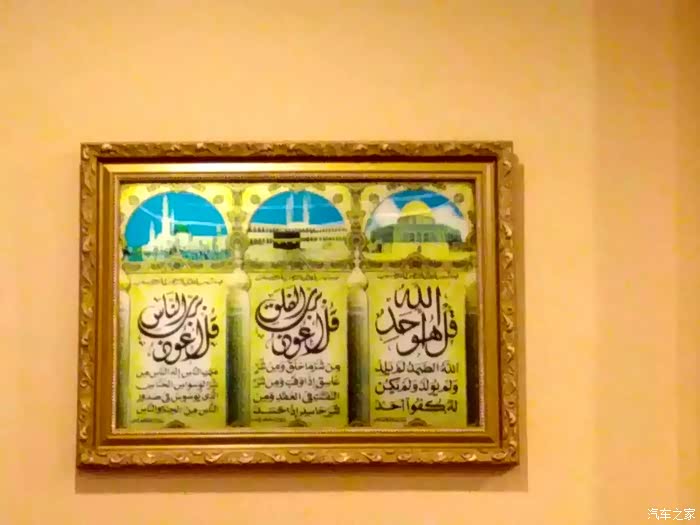 قل هو الله احد
الله الصمد لم يلد
ولم يولد ولم يكن
له كفوا احد
قل اعوذ برب الفلق
من شر ما خلق ومن شر
غاسق إذا وقب ومن شر
النفثت في العقد ومن
شر حاسد إذا حسد
قل اعوذ برب الناس
ملك الناس إله الناس من
شر الوسواس الخناس
الذي يوسوس في صدور
الناس من الجنة والناس
汽车之家